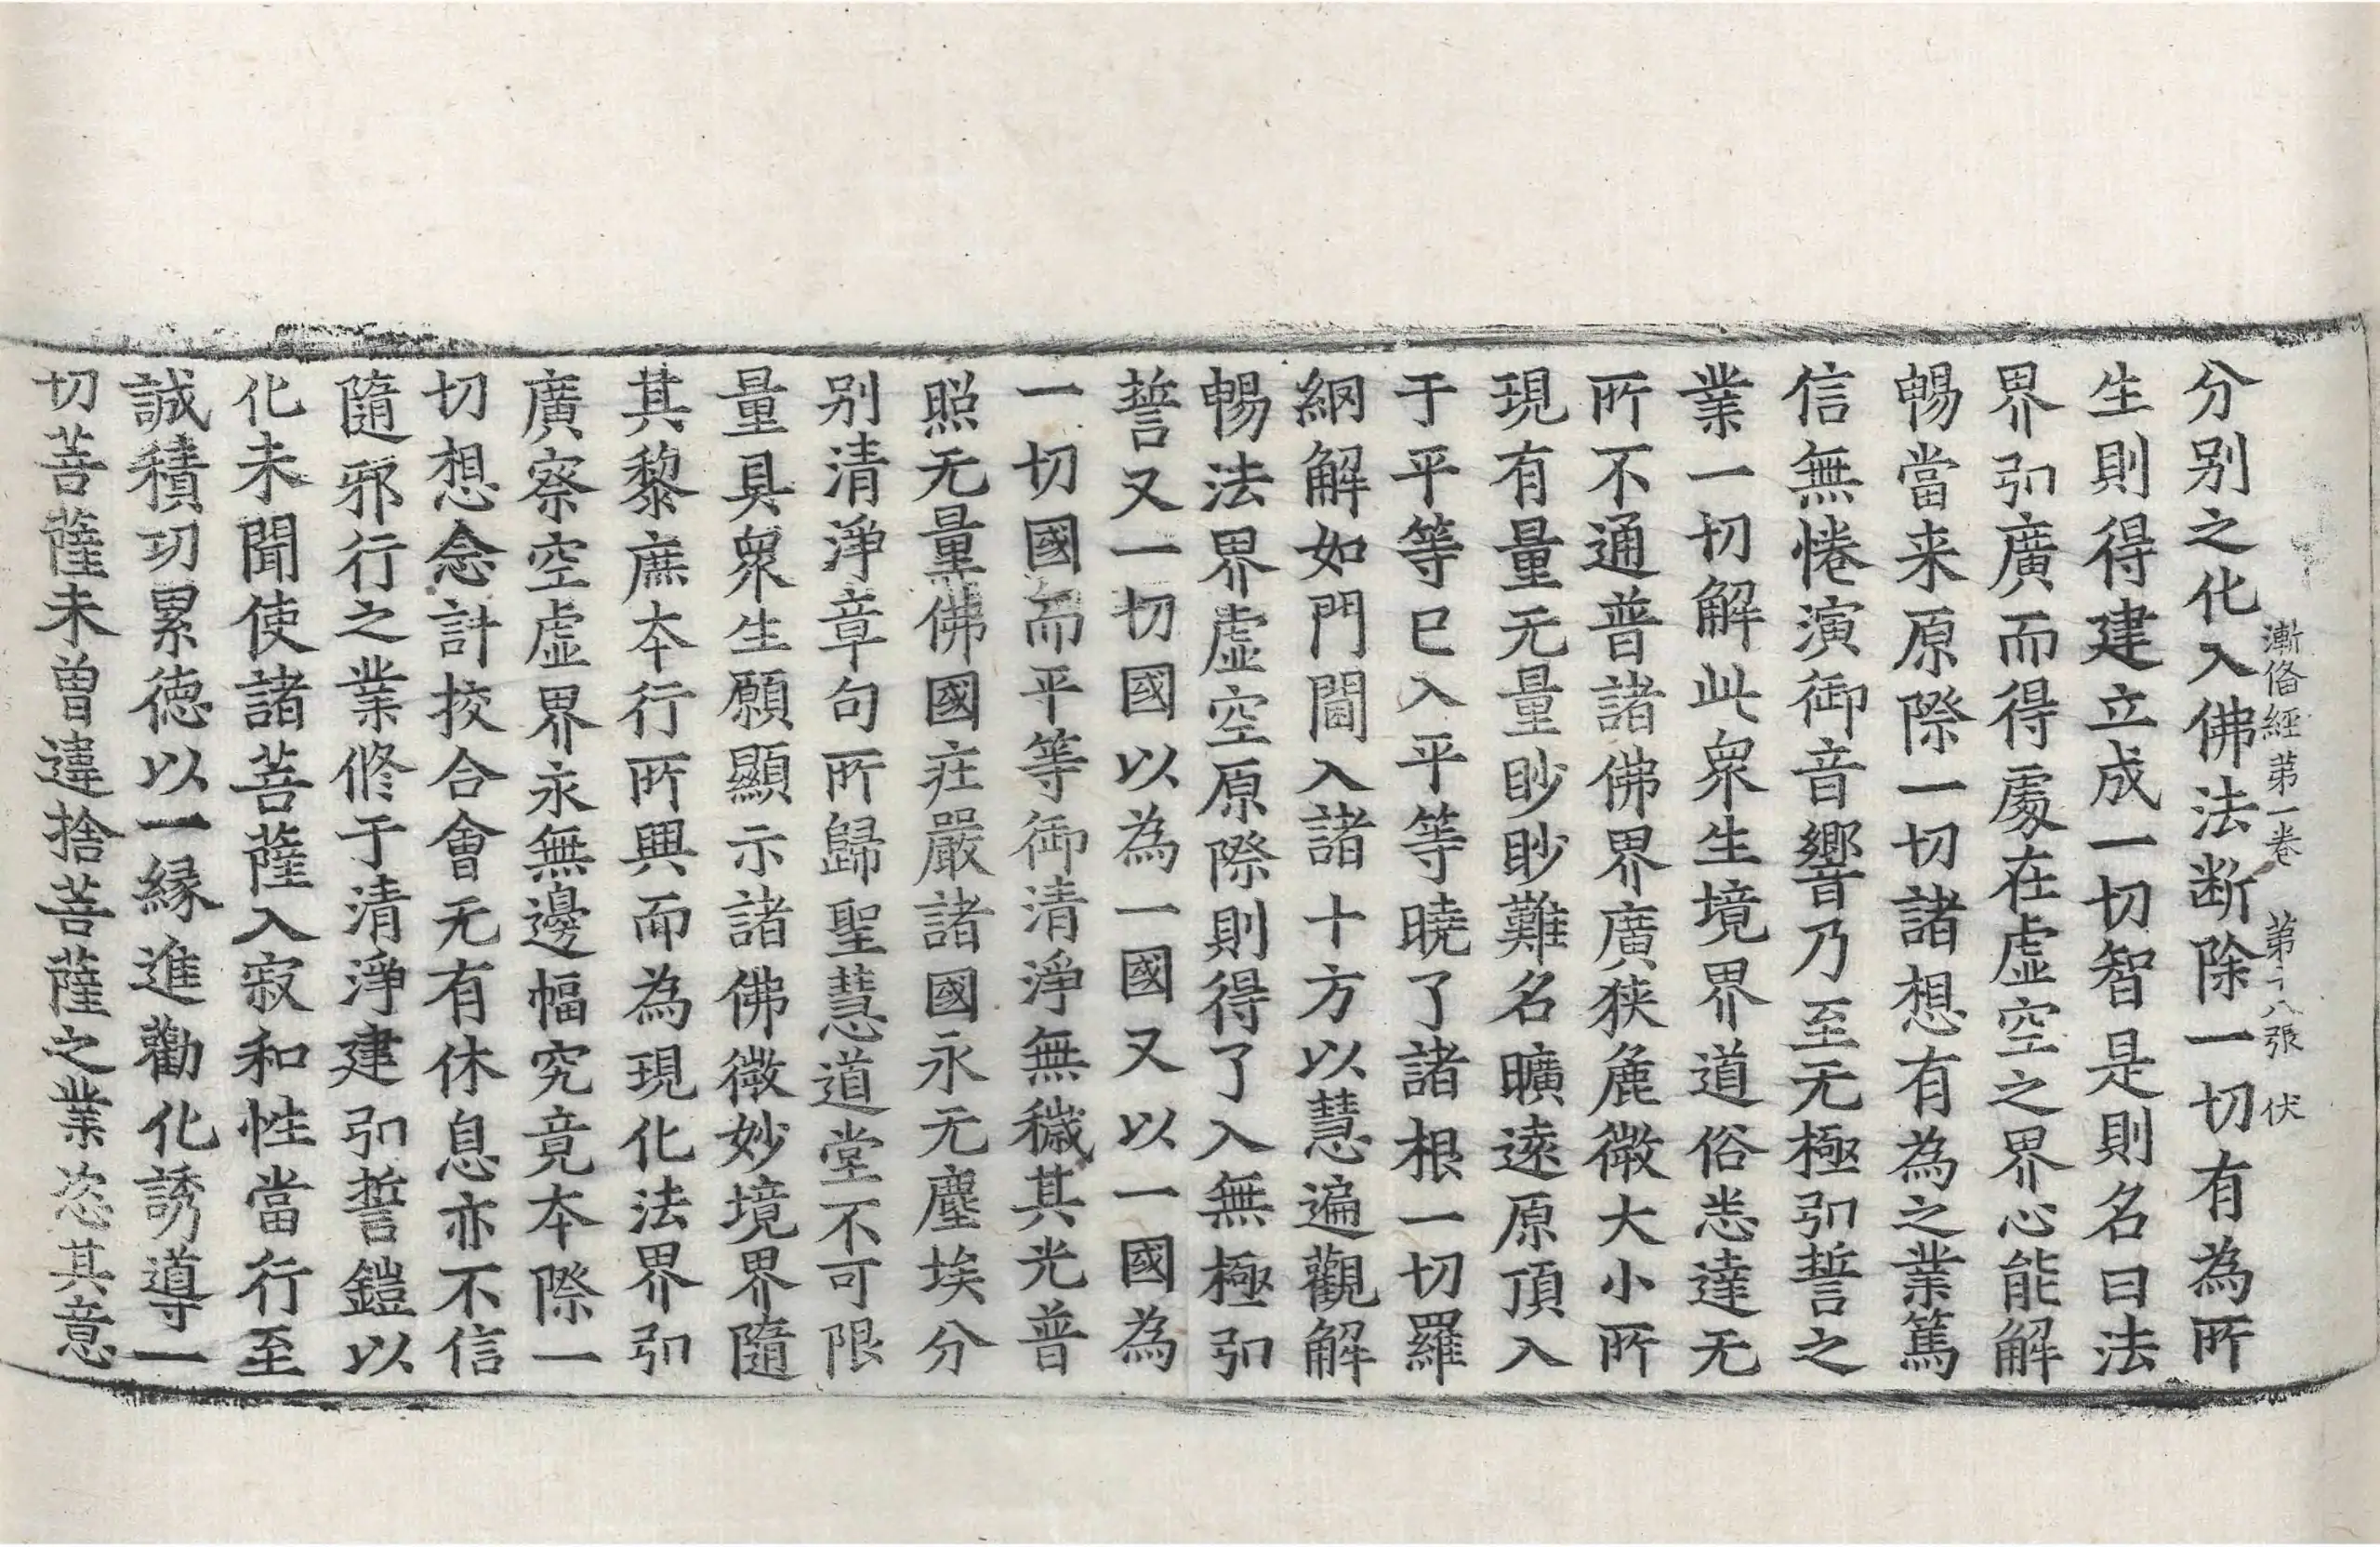 漸俻經第一卷 第十八張 伏
分别之化入佛法断除一切有為所
生則得建立成一切智是則名曰法
界弘廣而得處在虚空之界心能解
暢當来原際一切諸想有為之業篤
信無惓演御音響乃至无極弘誓之
業一切解此衆生境界道俗悉達无
所不通普諸佛界廣狹麁微大小所
現有量无量眇眇難名曠遠原頂入
于平等已入平等曉了諸根一切羅
網解如門閫入諸十方以慧遍觀解
暢法界虚空原際則得了入無極弘
誓又一切國以為一國又以一國為
一切國而平等御清淨無穢其光普
照无量佛國莊嚴諸國永无塵埃分
别清淨章句所歸聖慧道堂不可限
量具衆生願顯示諸佛微妙境界隨
其黎庶本行所興而為現化法界弘
廣察空虚界永無邊幅究竟本際一
切想念計挍合會无有休息亦不信
隨邪行之業修于清淨建弘誓鎧以
化未聞使諸菩薩入寂和性當行至
誠積功累德以一緣進勸化誘導一
切菩薩未曽違捨菩薩之業恣其意